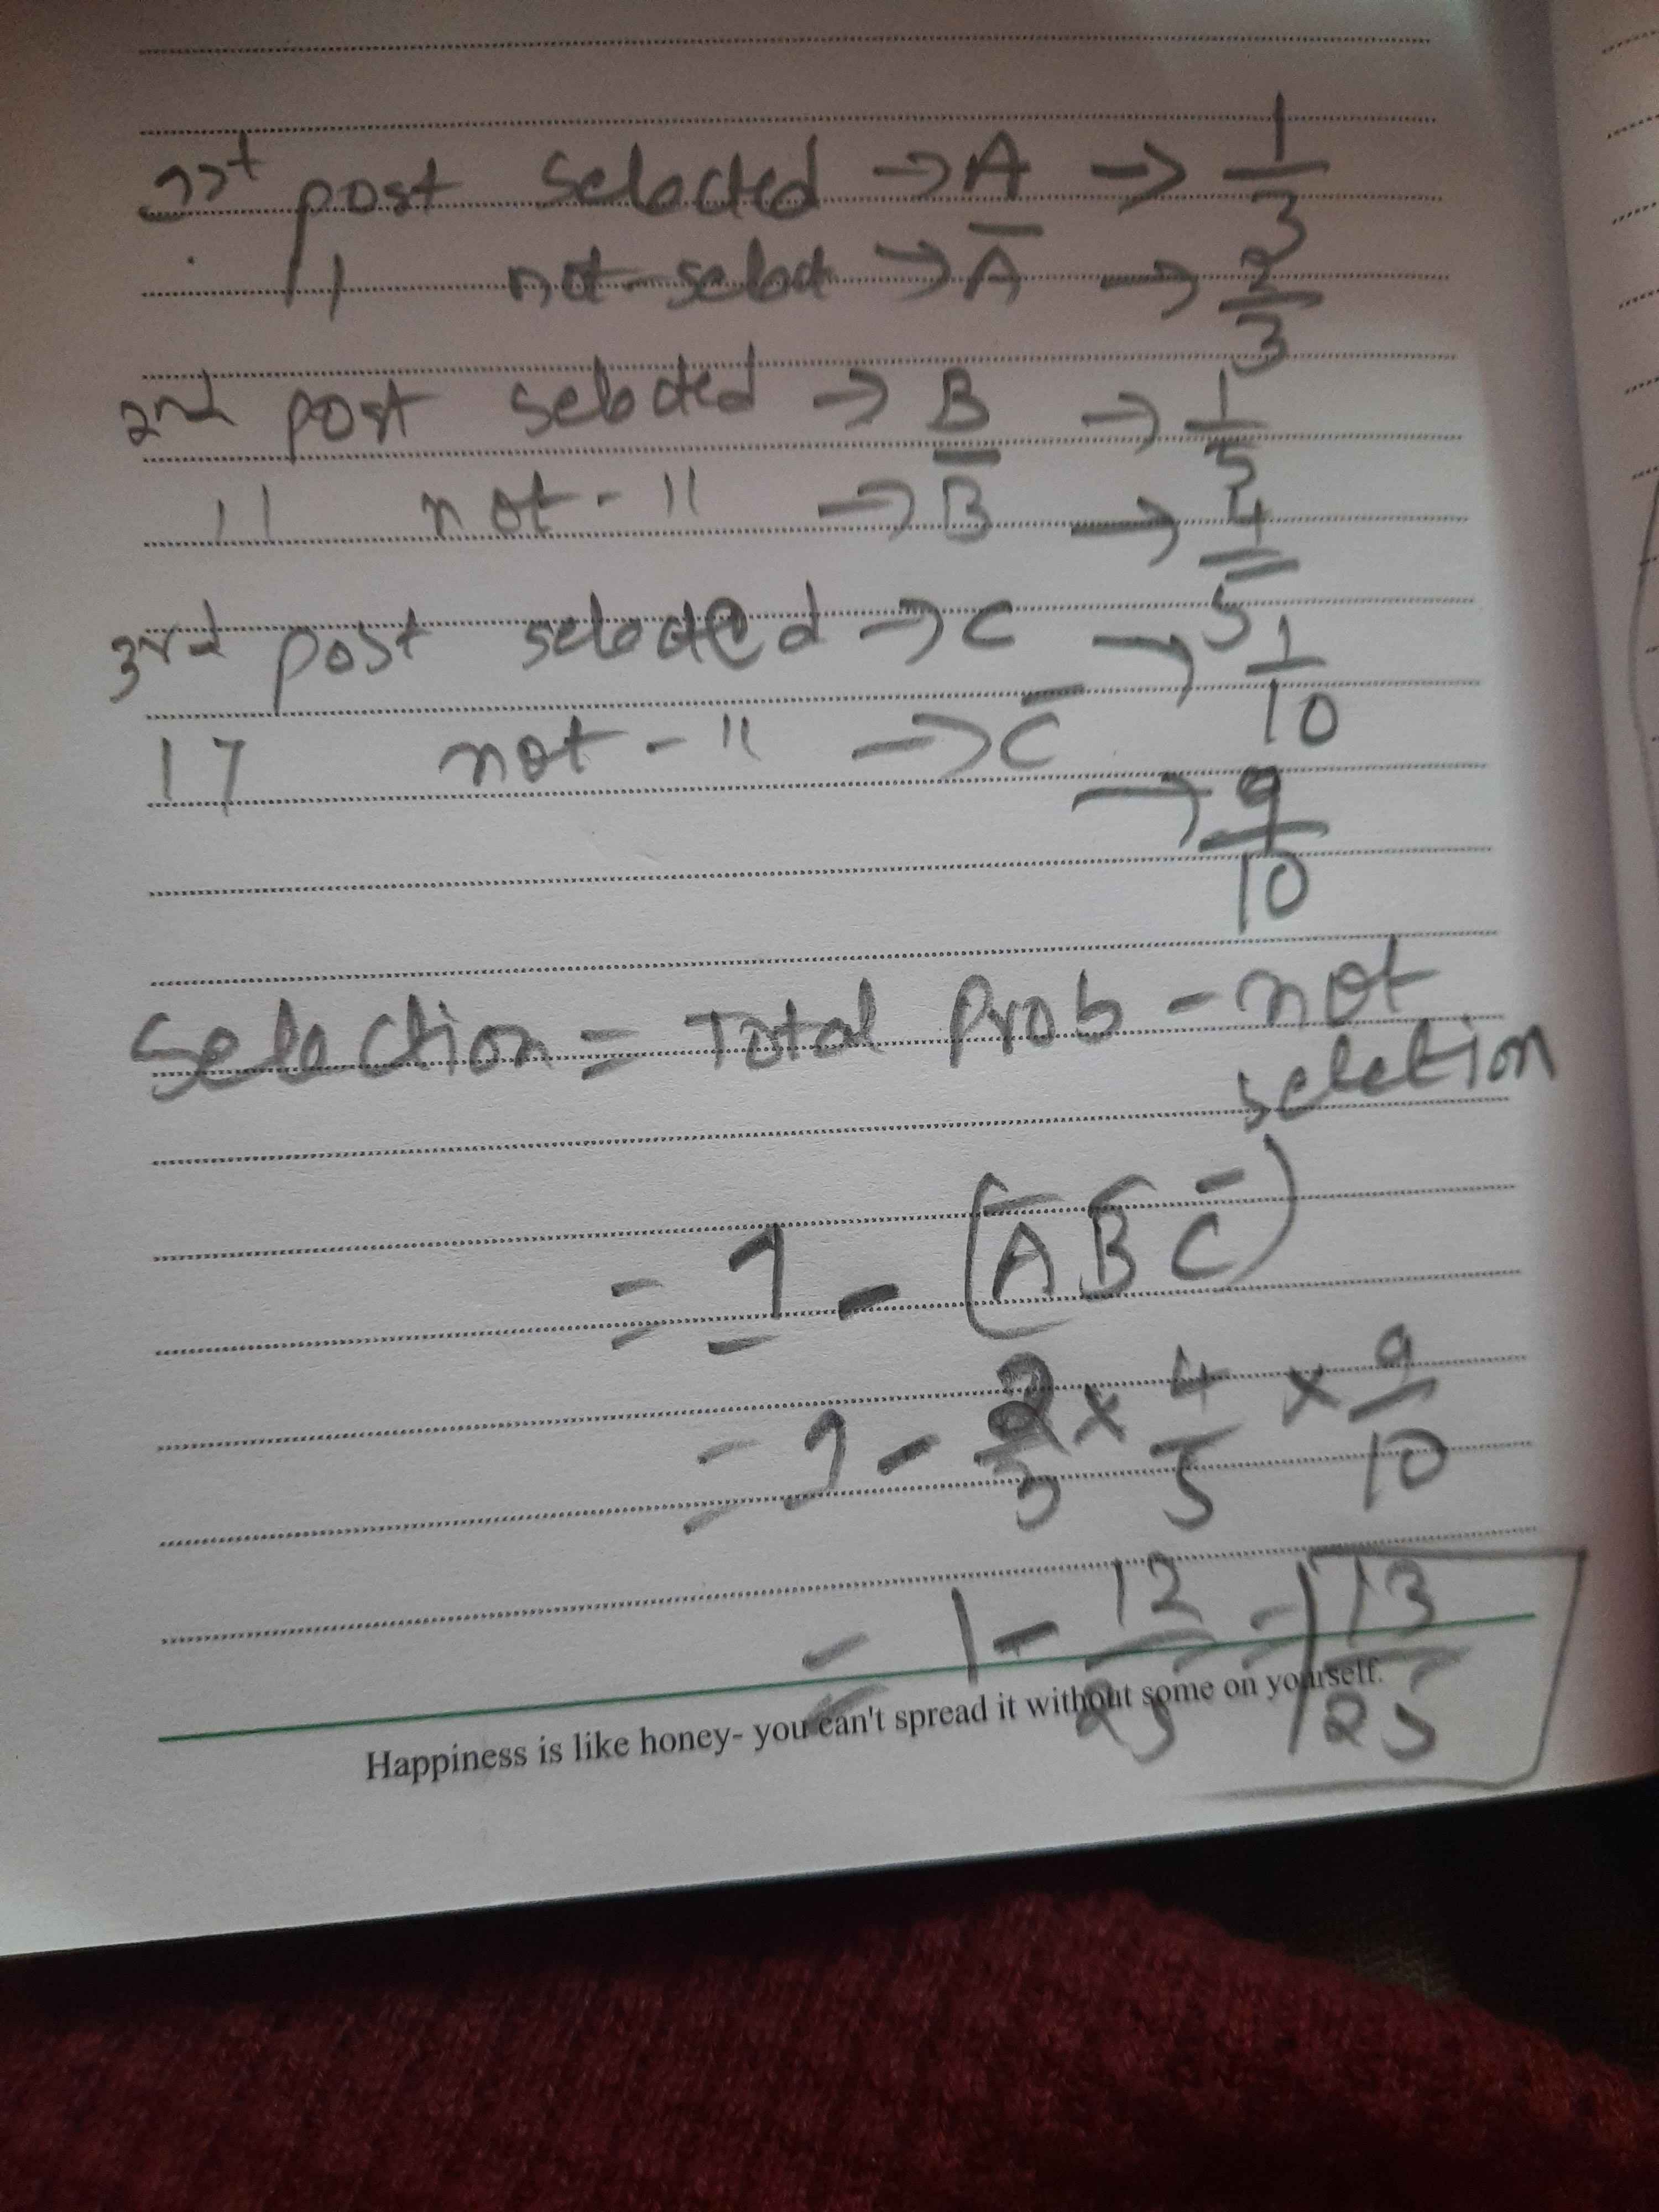 1st post selected → A → 1/3
11 not-select → A̅ → 2/3
2nd post selected → B → 1/5
11 not - 11 → B̅ → 4/5
3rd post selected → C → 1/10
17 not - 11 → C̅ → 9/10
Selection = Total Prob - not
seletion
= 1 - (A̅ B̅ C̅)
= 1 - 2/3 × 4/5 × 9/10
= 1 - 12/25 = 13/25
Happiness is like honey- you can't spread it without some on yourself.